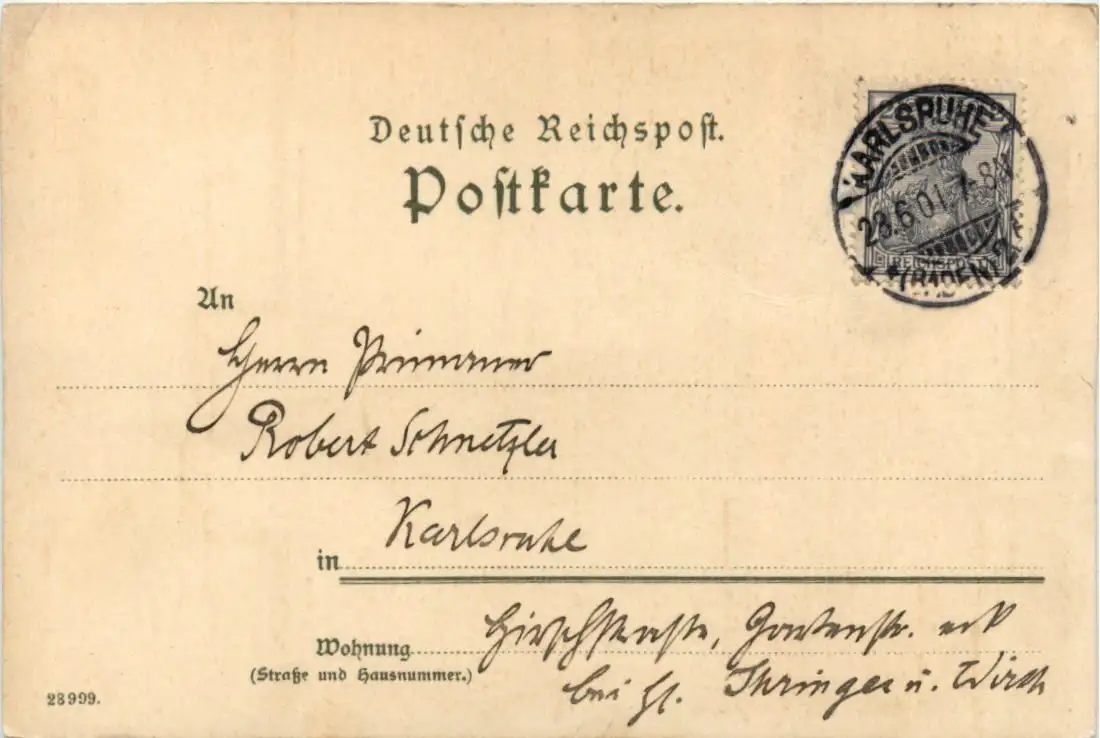 Deutsche Reichspost.
Postkarte.
KARLSRUHE
28.6.01. 7-8N
(BADEN)
REICHSPOST
An
Herrn Primaner
Robert Schnetzler
in Karlsruhe
Wohnung Hirschstrasse, Gartenstr. eck
(Straße und Hausnummer.)
bei H. Ihringer u. Wirth
28999.